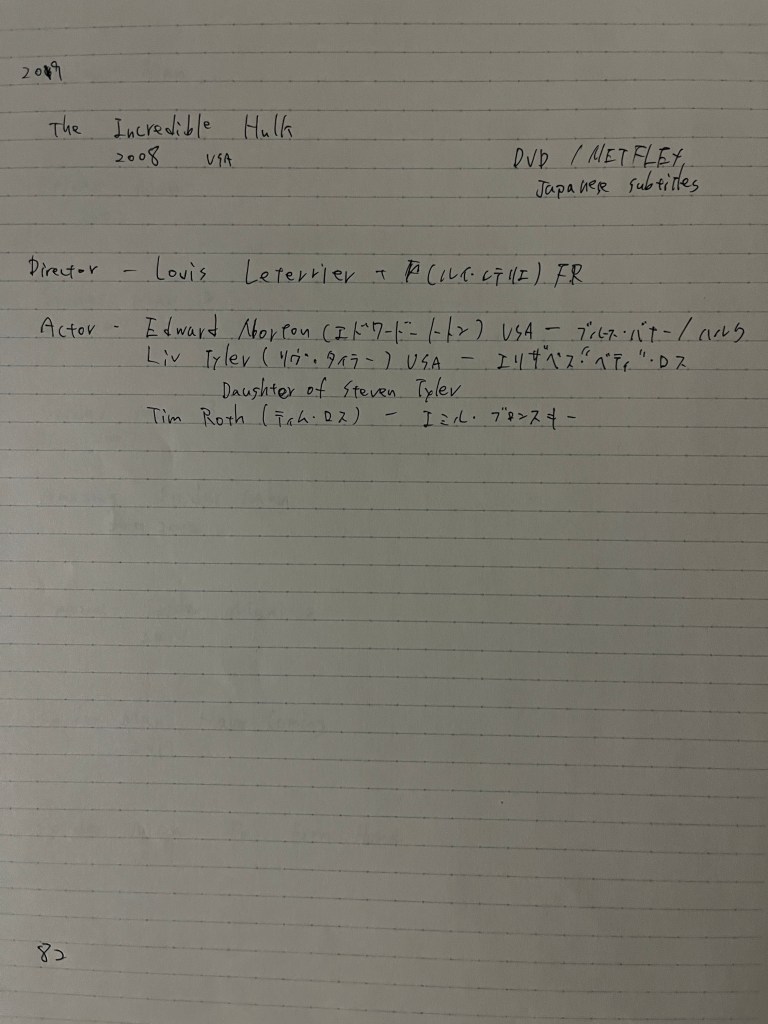 2019
The Incredible Hulk
2008 USA
DVD / NETFLEX,
Japanese subtitles
Director - Louis Leterrier (ルイ・レテリエ) FR
Actor - Edward Norton (エドワード・ノートン) USA - ブルース・バナー/ハルク
Liv Tyler (リヴ・タイラー) USA - エリザベス"ベティ"・ロス
Daughter of Steven Tyler
Tim Roth (ティム・ロス) - エミル・ブロンスキー
82